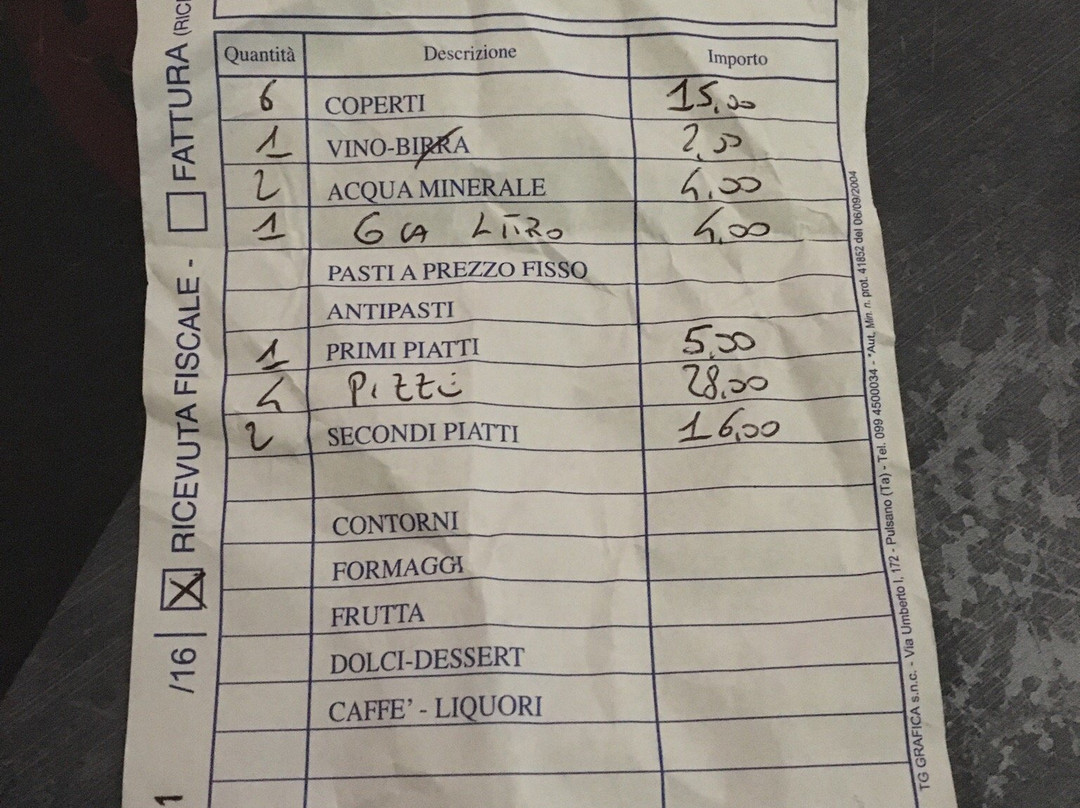 Quantità Descrizione Importo
6 COPERTI 15,00
1 VINO-BIRRA 2,00
2 ACQUA MINERALE 4,00
1 LITRO 4,00
PASTI A PREZZO FISSO
ANTIPASTI
1 PRIMI PIATTI 5,00
4 PIZZE 28,00
2 SECONDI PIATTI 16,00
CONTORNI
FORMAGGI
FRUTTA
DOLCI-DESSERT
CAFFE' - LIQUORI
/16 X RICEVUTA FISCALE - FATTURA (RIC
1
TG GRAFICA s.n.c. - Via Umberto I, 172 - Pulsano (Ta) - Tel. 099 4500034 - *Aut. Min. n. prot. 41852 del 06/09/2004